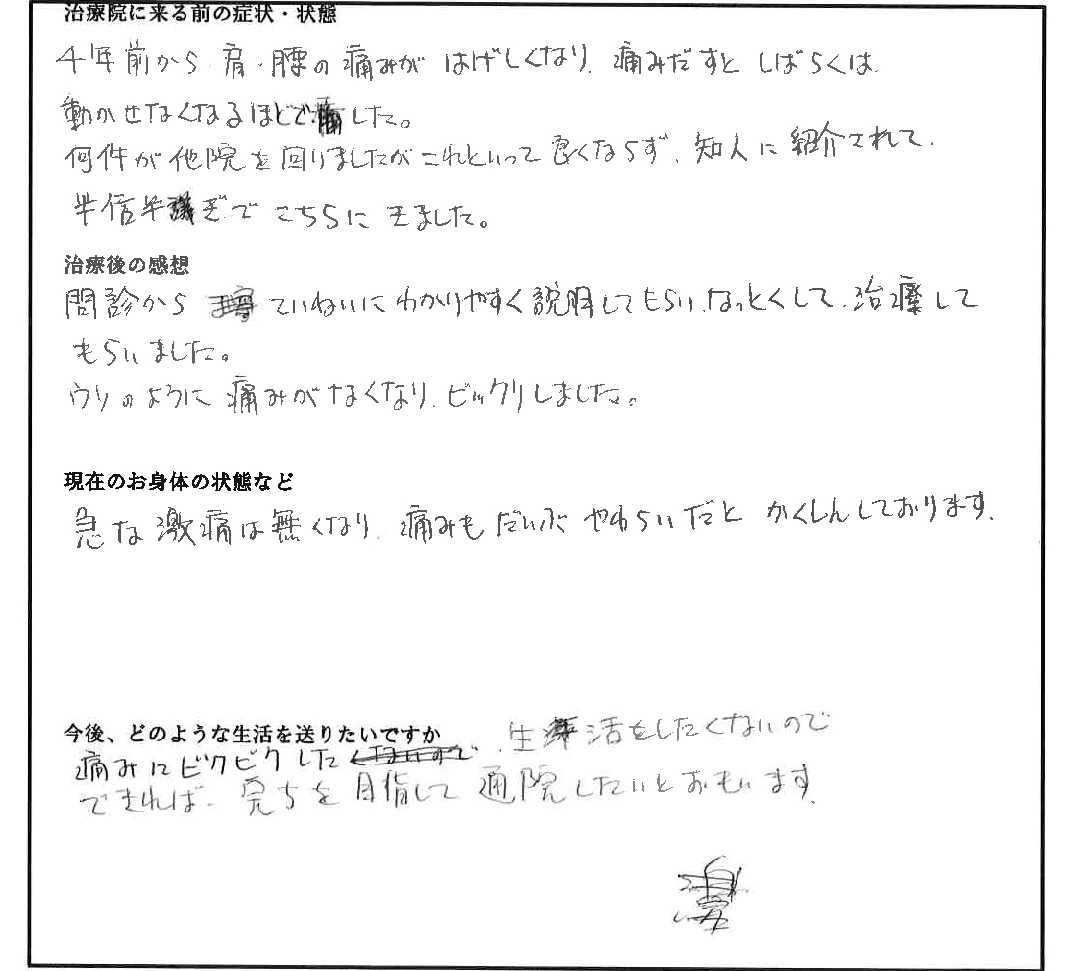 治療院に来る前の症状・状態
4年前から肩・腰の痛みが はげしくなり、痛みだすと しばらくは
動かせなくなるほどでした。
何件か他院を回りましたがこれといって良くならず、知人に紹介されて、
半信半ぎで こちらに きました。
治療後の感想
問診から ていねいに わかりやすく説明してもらい、なっとくして、治療して
もらいました。
ウソのように 痛みがなくなり、ビックリしました。
現在のお身体の状態など
急な激痛は無くなり、痛みも だいぶ やわらいだと かくしんしております。
今後、どのような生活を送りたいですか
痛みにビクビクした 生活をしたくないので
できれば、完ちを 目指して 通院したいとおもいます。